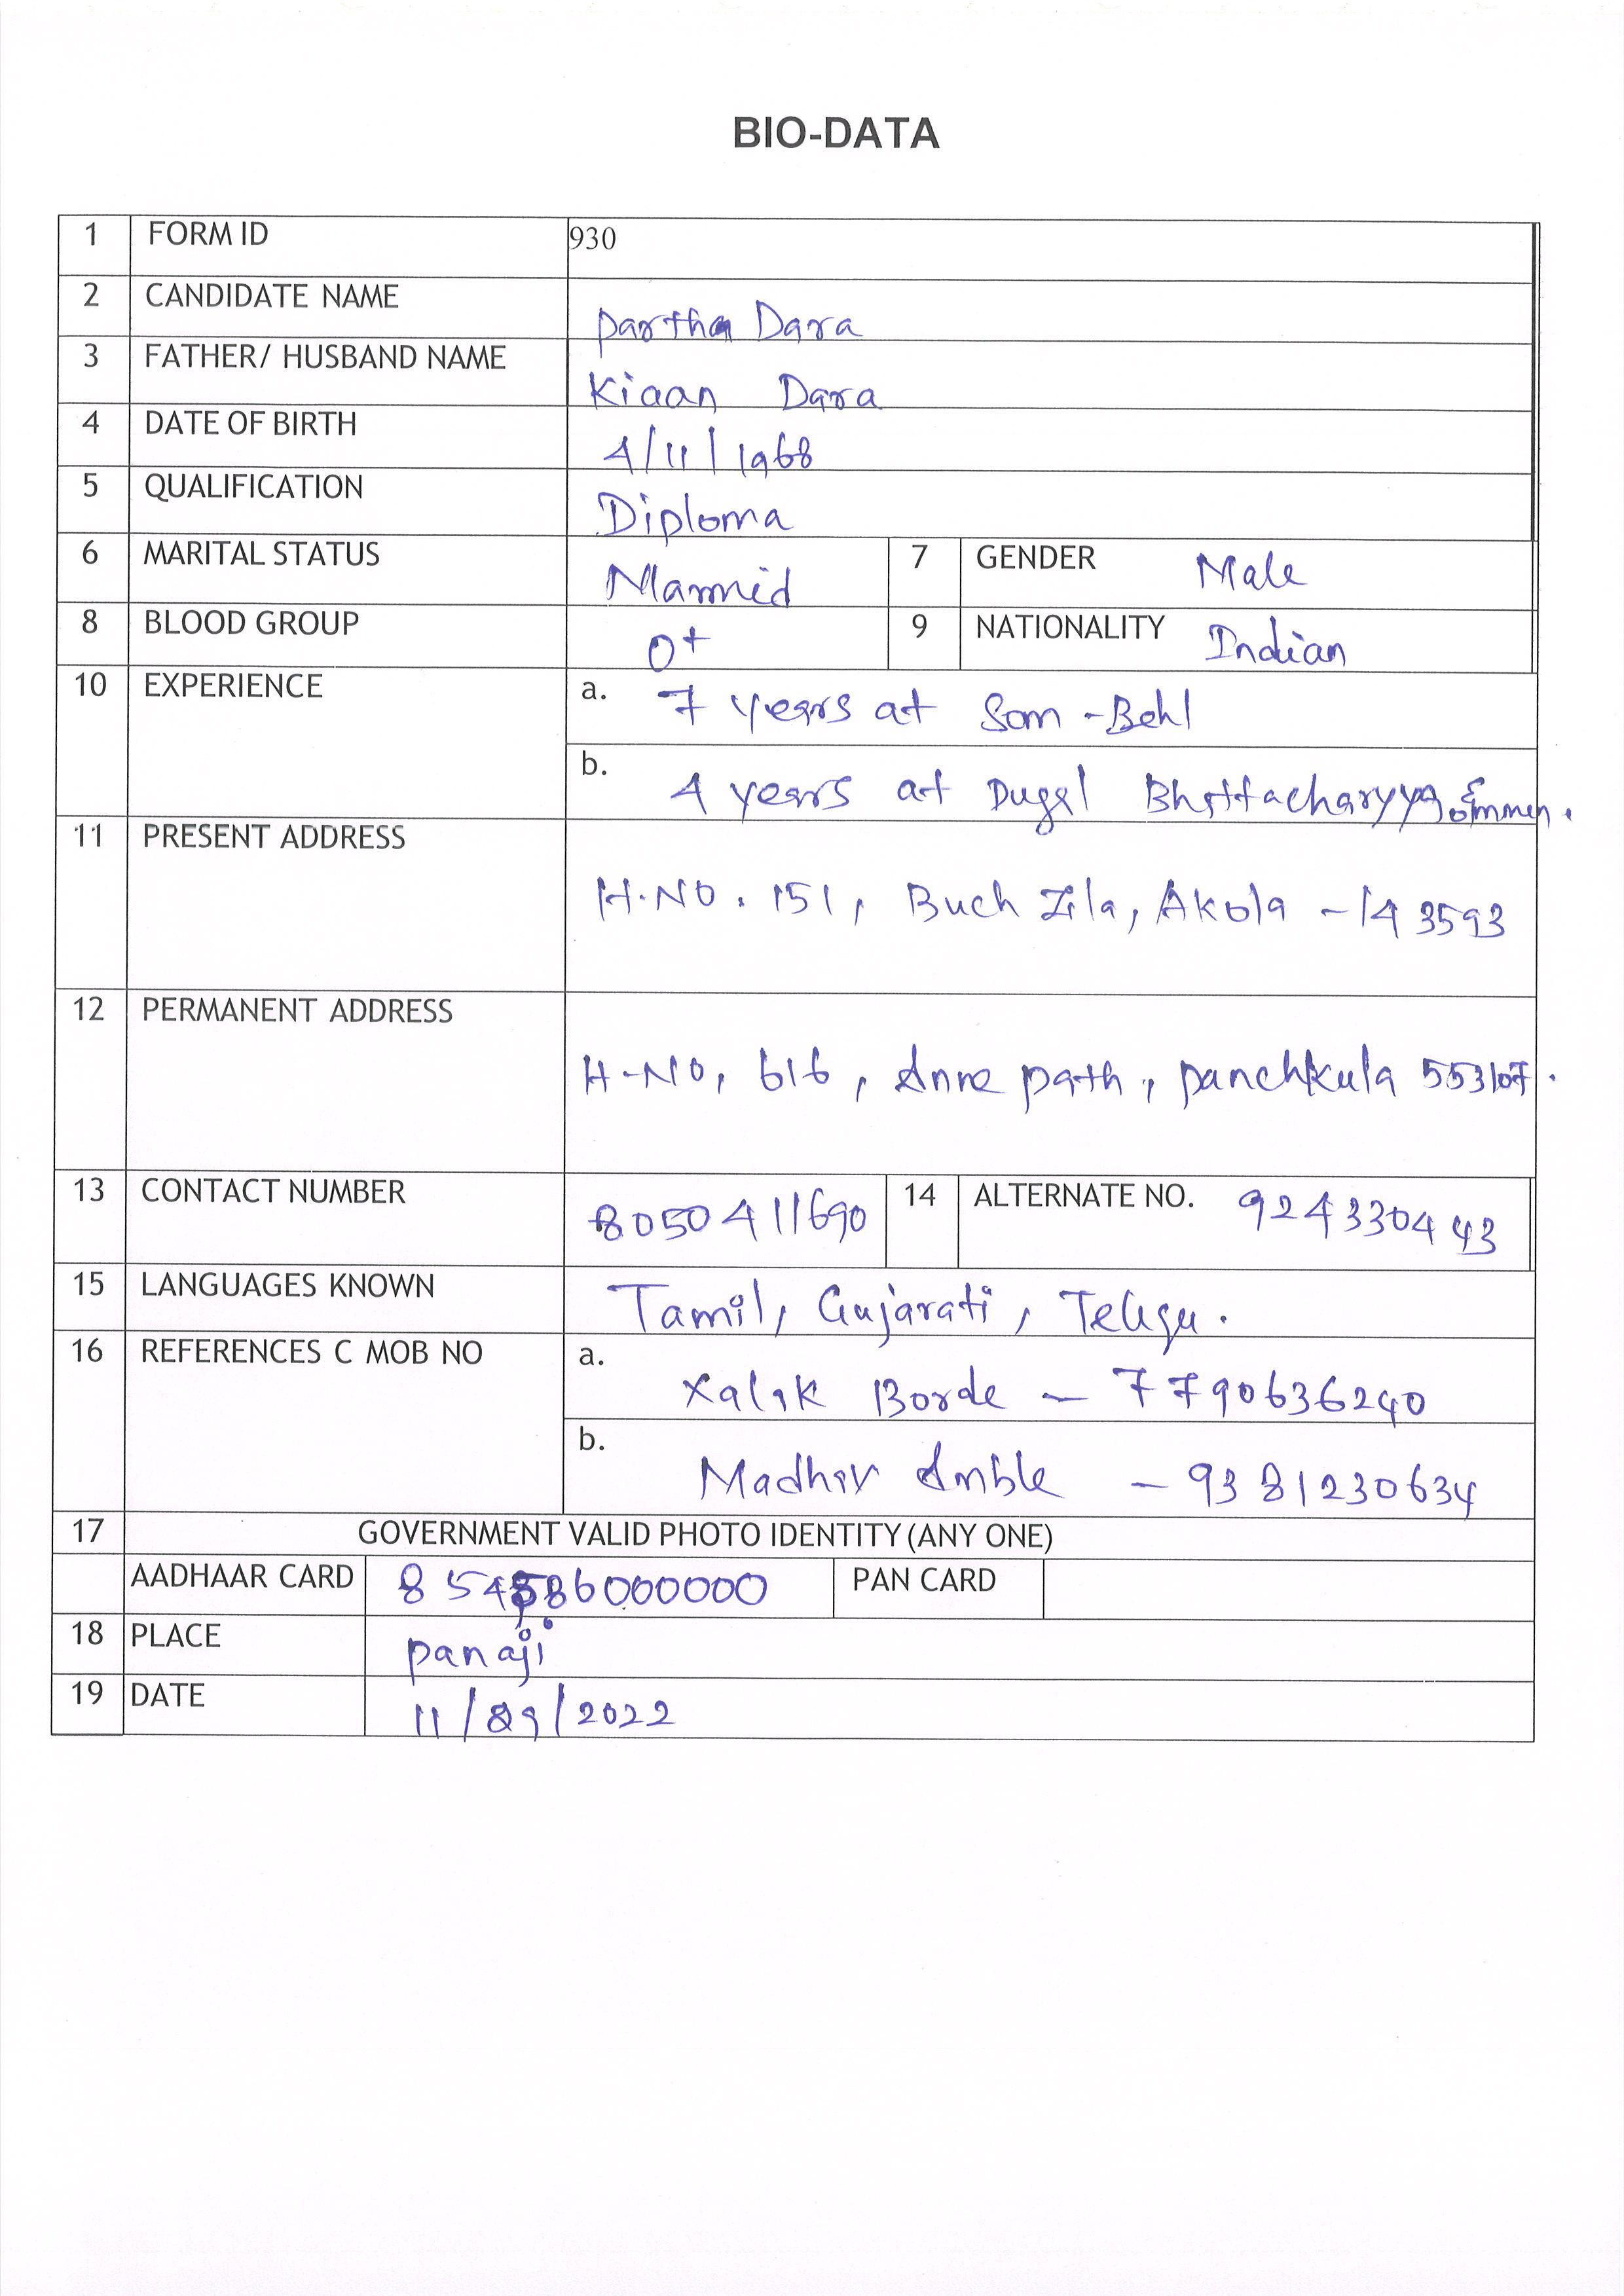 BIO-DATA
1 FORM ID 930
2 CANDIDATE NAME Partha Dara
3 FATHER/ HUSBAND NAME Kiaan Dara
4 DATE OF BIRTH 4/11/1968
5 QUALIFICATION Diploma
6 MARITAL STATUS Married 7 GENDER Male
8 BLOOD GROUP O+ 9 NATIONALITY Indian
10 EXPERIENCE a. 7 years at Som-Behl
b. 4 years at Dugal Bhattacharyya
11 PRESENT ADDRESS H.NO. 151, Buch Zila, Akola - 143593
12 PERMANENT ADDRESS H-NO, 616, Anne path, panchkula 553107.
13 CONTACT NUMBER 8050411690 14 ALTERNATE NO. 9243330443
15 LANGUAGES KNOWN Tamil, Gujarati, Telugu.
16 REFERENCES C MOB NO a. Borde - 7790636240
b. - 9381230634
17 GOVERNMENT VALID PHOTO IDENTITY (ANY ONE)
AADHAAR CARD PAN CARD
18 PLACE panaji
19 DATE 11/09/2022